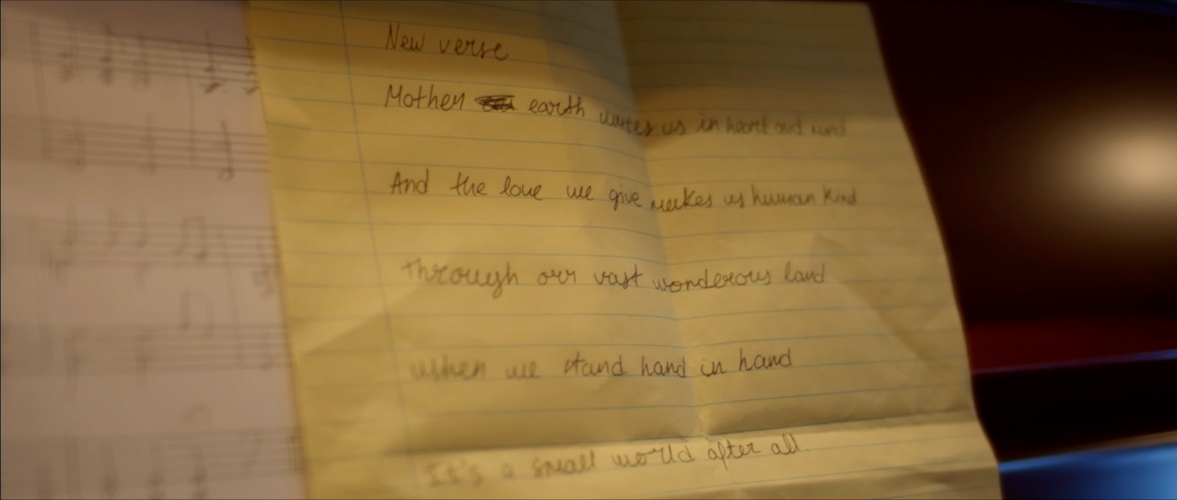 New verse
Mother earth unites us in heart and mind
And the love we give makes us human kind
through our vast wonderous land
When we stand hand in hand
It's a small world after all